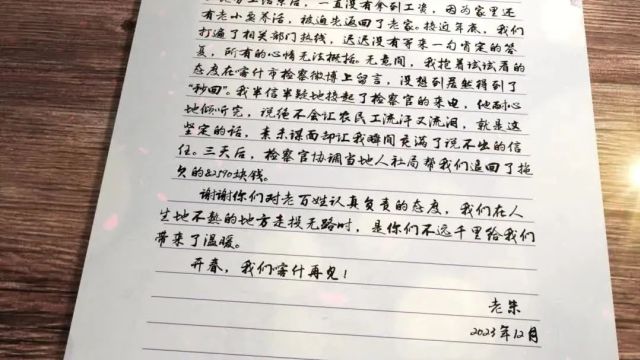 一直没有拿到工资，因为家里还
有老小要养活，被迫先返回了老家。接近年底，我们
打遍了相关部门热线，迟迟没有等来一句肯定的答
复，所有的心情无法概括。无意间，我抱着试试看的
态度在喀什市检察微博上留言，没想到居然得到了
“秒回”。我半信半疑地接起了检察官的来电，他耐心
地倾听完，说绝不会让农民工流汗又流泪，就是这
坚定的话，素未谋面却让我瞬间充满了说不出的信
任。三天后，检察官协调当地人社局帮我们追回了拖
欠的82590块钱。
谢谢你们对老百姓认真负责的态度，我们在人
生地不熟的地方走投无路时，是你们不远千里给我们
带来了温暖。
开春，我们喀什再见！
老朱
2023年12月